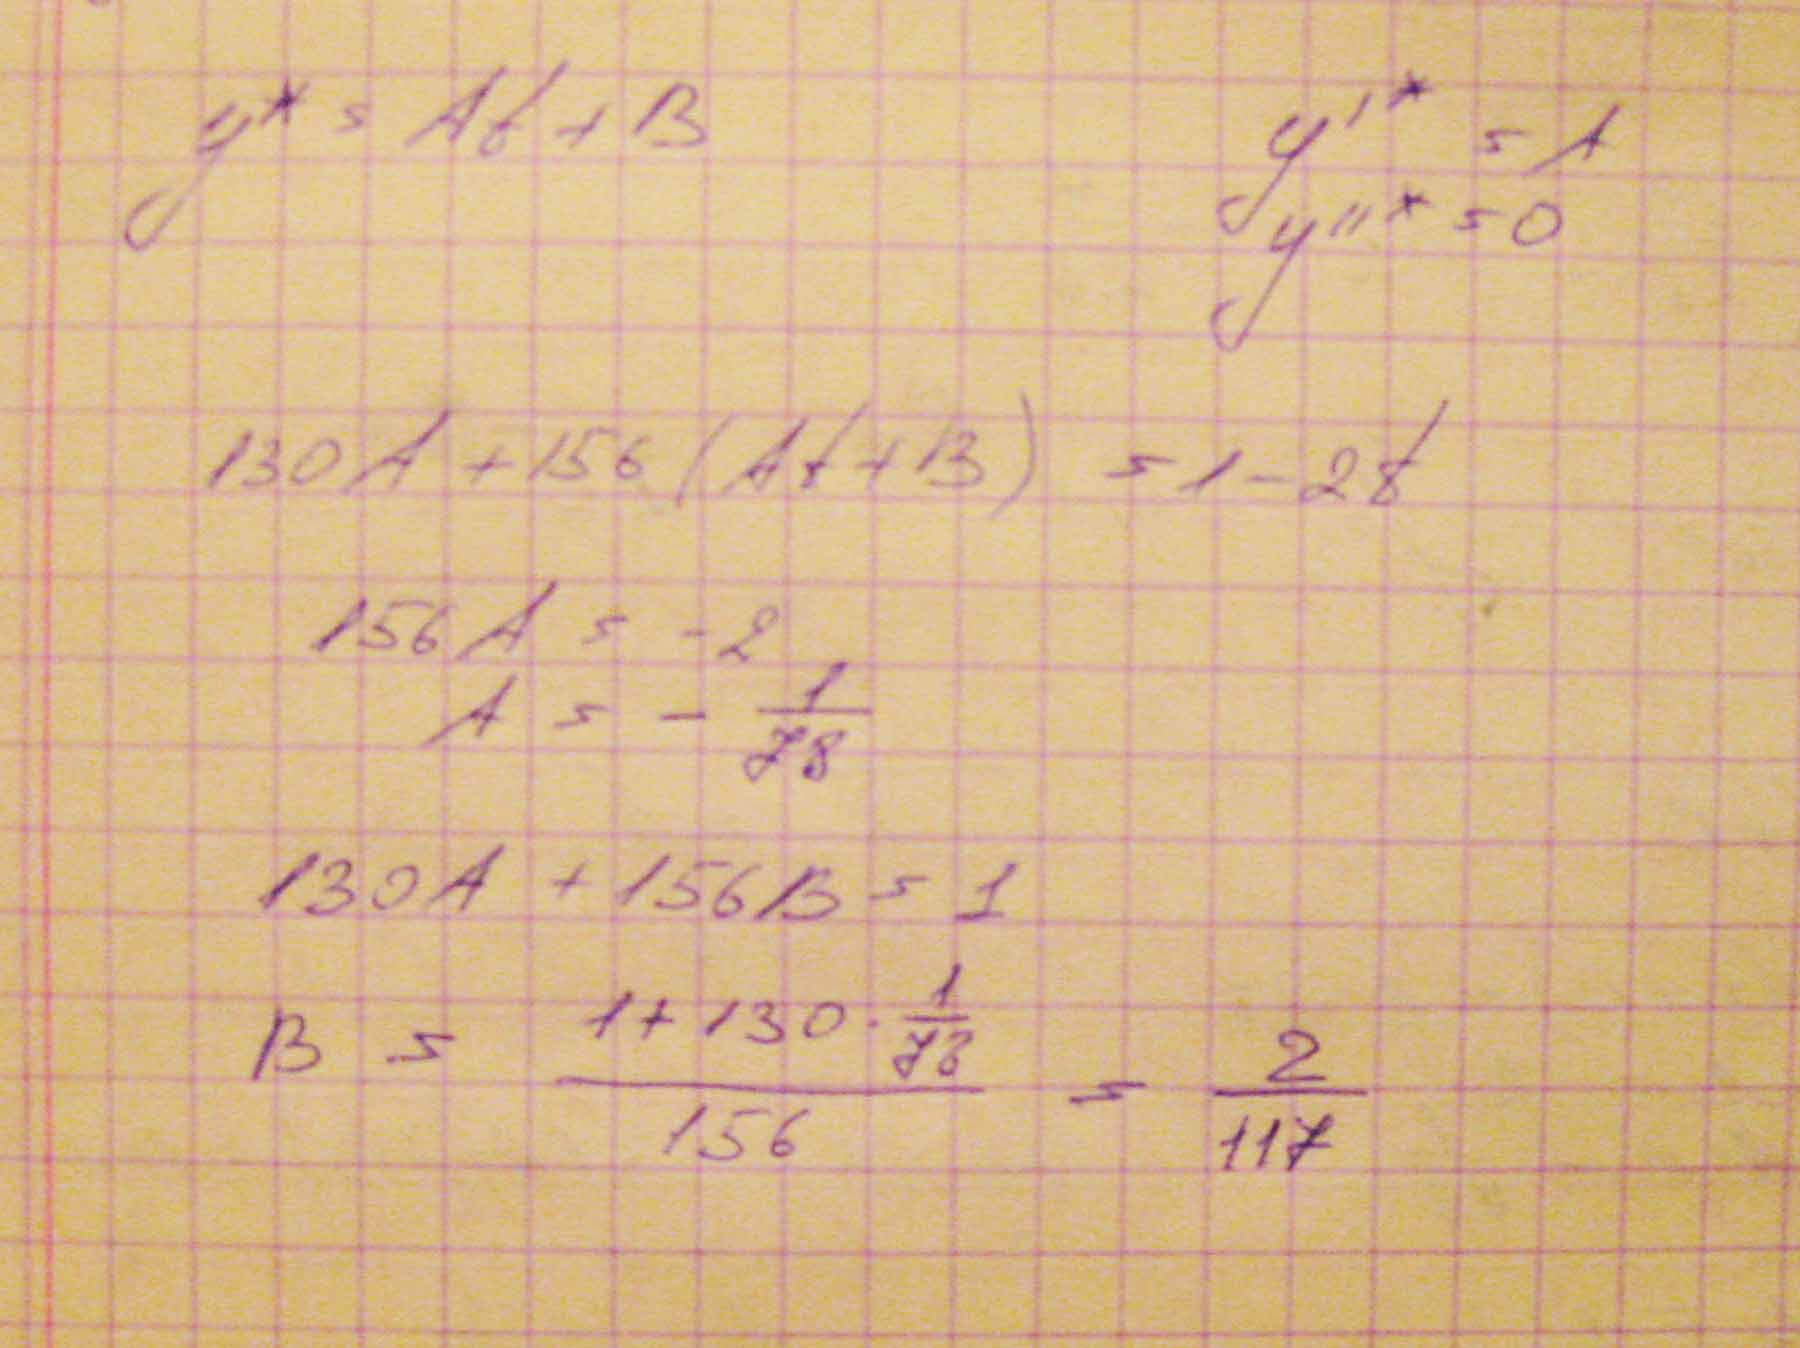 y* = At + B
y'* = A
y''* = 0
130A + 156(At + B) = 1 - 2t
156A = -2
A = - 1/78
130A + 156B = 1
B = (1 + 130 · 1/78)/156 = 2/117